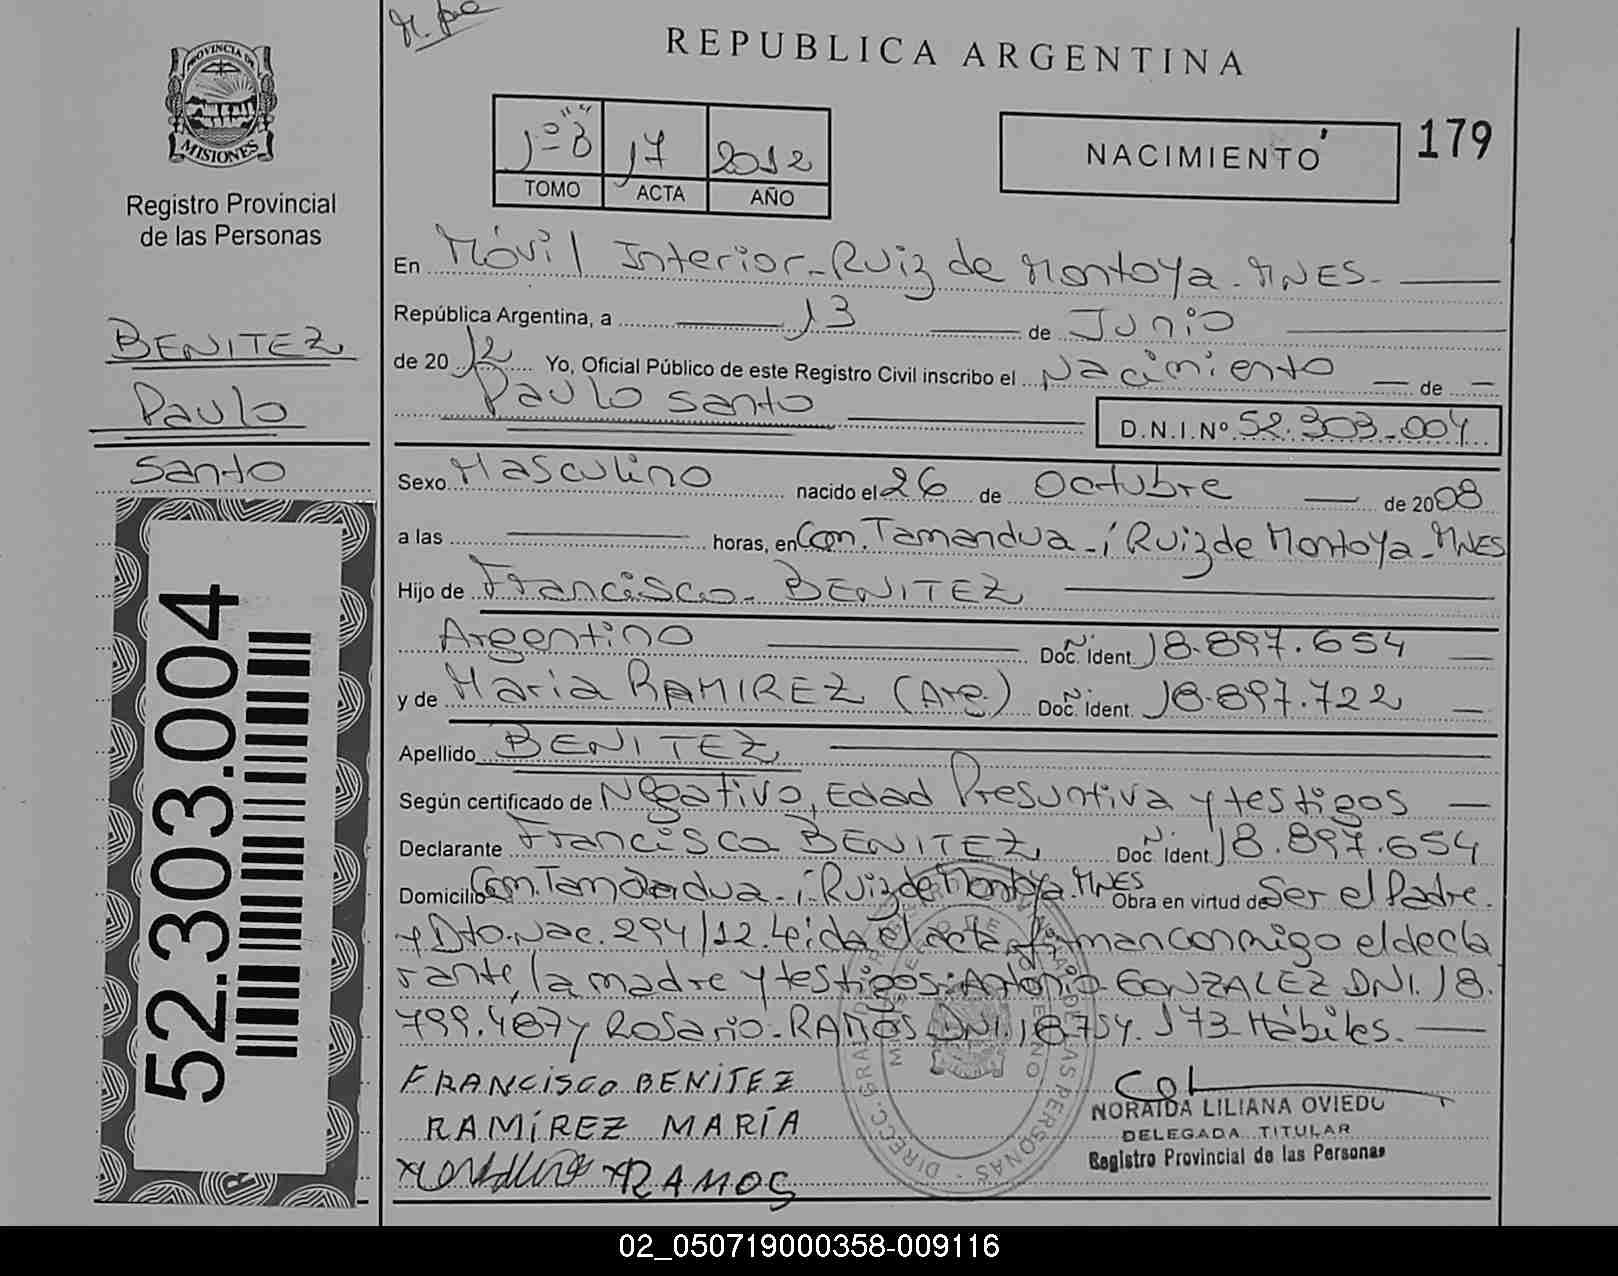 REPUBLICA ARGENTINA
PROVINCIA DE
MISIONES
Registro Provincial
de las Personas
1º "B" 17 2012
TOMO ACTA AÑO
NACIMIENTO 179
BENITEZ
Paulo
Santo
52.303.004
En Móvil Interior-Ruiz de Montoya-MNES.-
República Argentina, a 13 de Junio
de 2012 Yo, Oficial Público de este Registro Civil inscribo el Nacimiento — de —
Paulo Santo
D.N.I.Nº 52.303.004
Sexo Masculino nacido el 26 de Octubre — de 2008
a las — horas, en Com. Tamandua-í Ruiz de Montoya-MNES
Hijo de Francisco BENITEZ
Argentino Doc. Ident. Nº 18.897.654 —
y de Maria RAMIREZ (Arg.) Doc. Ident. Nº 18.897.722 —
Apellido BENITEZ
Según certificado de Negativo, Edad Presuntiva y testigos —
Declarante Francisco BENITEZ Doc Nº Ident. 18.897.654
Domicilio Com. Tamandua-í-Ruiz de Montoya.MNES Obra en virtud de Ser el Padre.
y Dto.Nac. 294/12. Leida el acta firman conmigo el decla
rante, la madre y testigos: Antonio GONZALEZ DNI. 18.
799.487 y Rosario RAMOS DNI 18.754.173 Hábiles. —
FRANCISCO BENITEZ
RAMÍREZ MARÍA
RAMOS
NORAIDA LILIANA OVIEDO
DELEGADA TITULAR
Registro Provincial de las Personas
02_050719000358-009116